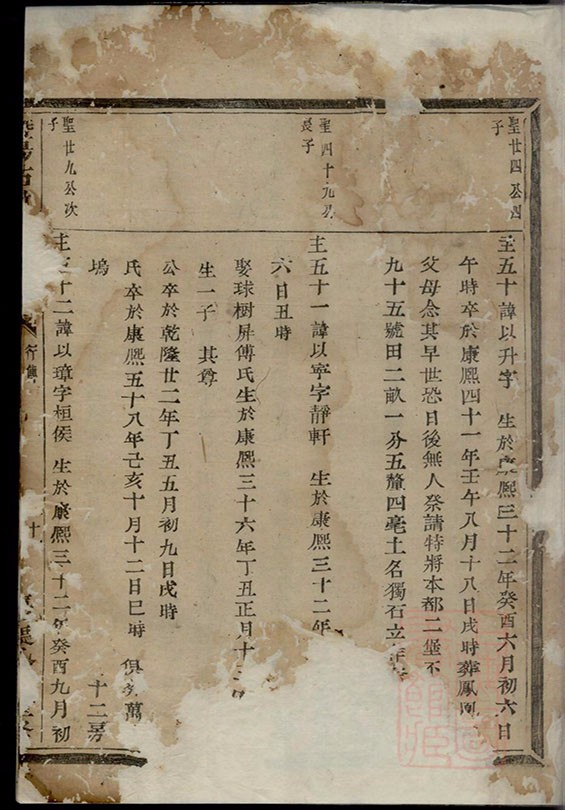 聖廿四公四
子
主五十諱以升字 生於康熙三十二年癸酉六月初六日
午時卒於康熙四十一年壬午八月十八日戌時葬鳳凰
父母念其早世恐日後無人祭請特將本都二堡不
九十五號田二畝一分五釐四毫土名獨石立
聖四十九公
長子
主五十一諱以寧字靜軒 生於康熙三十二年
六日丑時
娶球樹屏傅氏生於康熙三十六年丁丑正月十
生一子 其尊
公卒於乾隆廿二年丁丑五月初九日戌時
氏卒於康熙五十八年己亥十月十二日巳時 俱 萬
塢 十二房
聖廿九公次
子
主 十二諱以璋字桓侯 生於康熙三十二年癸酉九月初
行傳